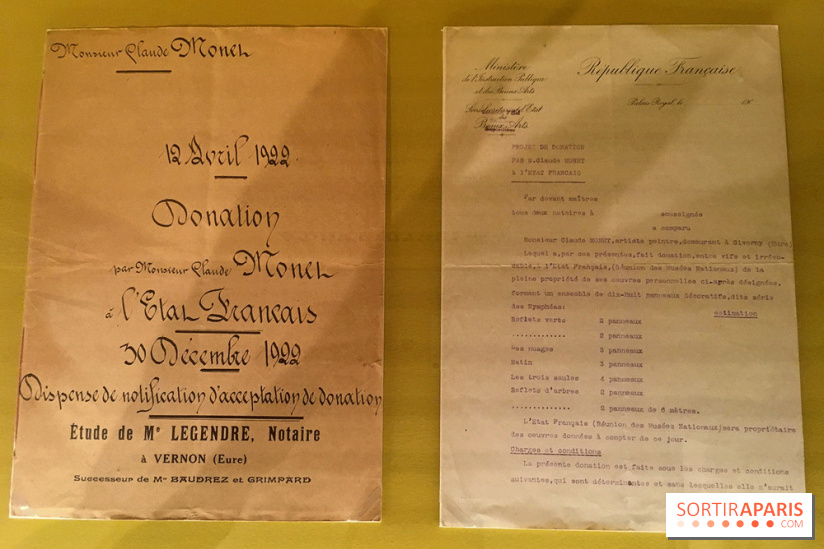 Monsieur Claude Monet
12 Avril 1922
Donation
par Monsieur Claude Monet
à l'Etat Français
30 Décembre 1922
Dispense de notification d'acceptation de donation
Étude de Me LEGENDRE, Notaire
à VERNON (Eure)
Successeur de Mes BAUDREZ et GRIMPARD
Ministère
de l'Instruction Publique
et des Beaux-Arts
Sous-Secrétariat d'Etat
Beaux-Arts
République Française
Palais Royal, le 191
PROJET DE DONATION
PAR M.Claude MONET
A L'ETAT FRANCAIS
Par devant maîtres
tous deux notaires à soussignés
a comparu
Monsieur Claude MONET,artiste peintre,demeurant à Giverny (Eure)
Lequel a,par ces présentes,fait donation,entre vifs et irrévo-
cable,à l'Etat Français,(Réunion des Musées Nationaux) de la
pleine propriété de ses oeuvres personnelles ci-après désignées,
formant un ensemble de dix-huit panneaux décoratifs,dits série
des Nymphéas:
estimation
Reflets verts 2 panneaux
............. 2 panneaux
Les nuages 3 panneaux
Matin 3 panneaux
Les trois saules 4 panneaux
Reflets d'arbres 2 panneaux
............. 2 panneaux de 6 mètres.
L'Etat Français (Réunion des Musées Nationaux)sera propriétaire
des oeuvres données à compter de ce jour.
Charges et conditions
La présente donation est faite sous les charges et conditions
suivantes,qui sont déterminantes et sans lesquelles elle n'aurait
SORTIRAPARIS
.COM